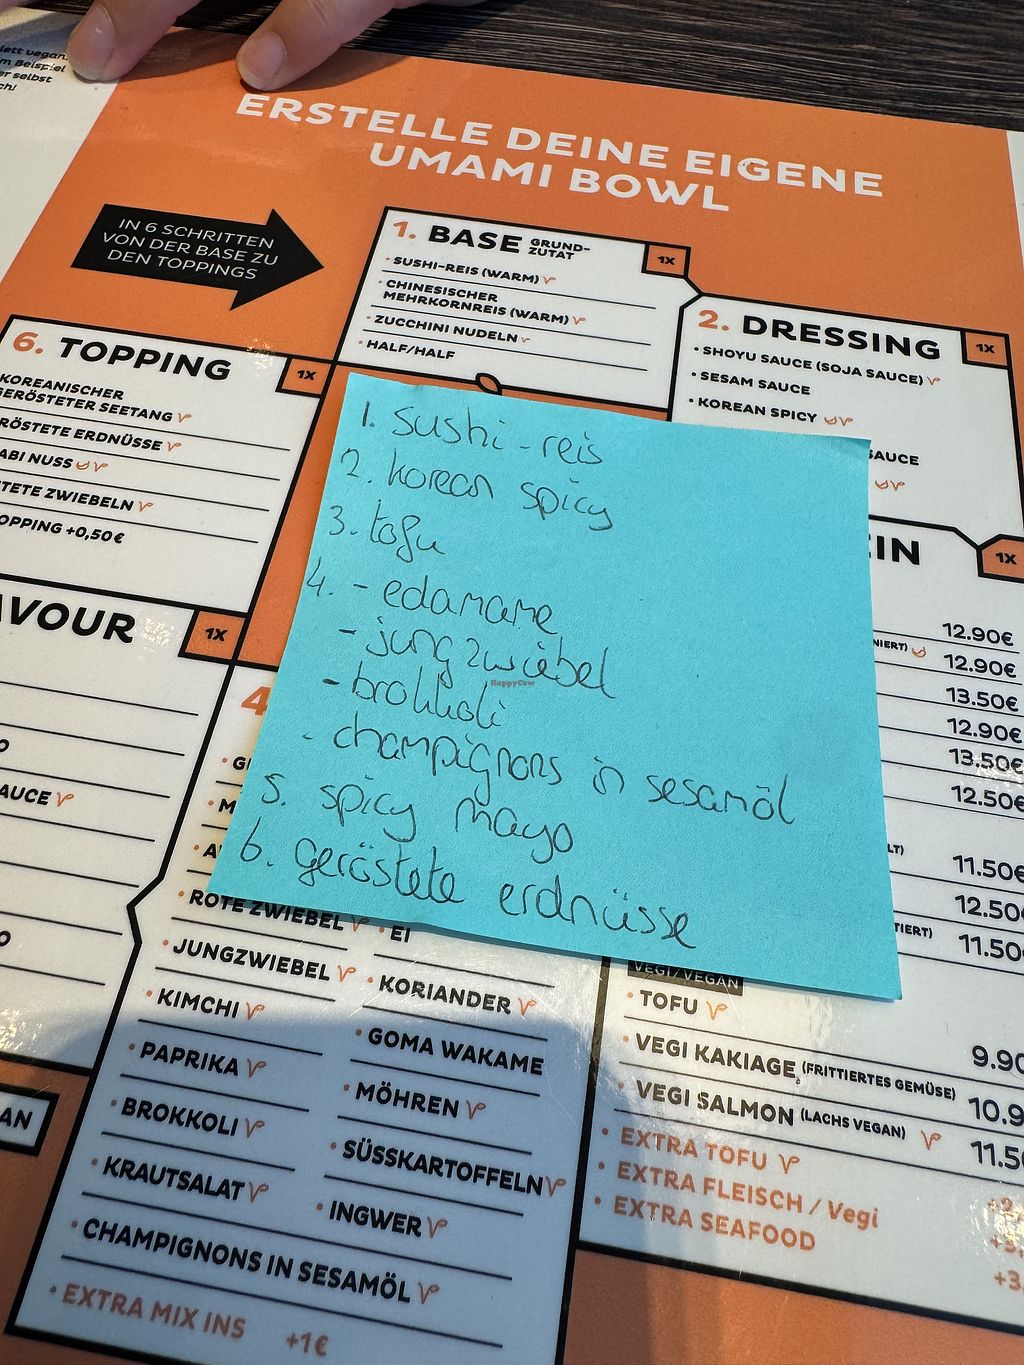 lett vegan
m Beispiel
er selbst
ch!
ERSTELLE DEINE EIGENE
UMAMI BOWL
IN 6 SCHRITTEN
VON DER BASE ZU
DEN TOPPINGS
1. BASE GRUND-
ZUTAT
1X
• SUSHI-REIS (WARM)
• CHINESISCHER
MEHRKORNREIS (WARM)
• ZUCCHINI NUDELN
• HALF/HALF
2. DRESSING
1X
• SHOYU SAUCE (SOJA SAUCE)
• SESAM SAUCE
• KOREAN SPICY
SAUCE
6. TOPPING
1X
KOREANISCHER
GERÖSTETER SEETANG
RÖSTETE ERDNÜSSE
ABI NUSS
TETE ZWIEBELN
OPPING +0,50€
1. sushi-reis
2. korean spicy
3. tofu
4. - edamame
- jungzwiebel
- brokkoli
- champignons in sesamöl
5. spicy mayo
6. geröstete erdnüsse
HappyCow
AVOUR
1X
O
AUCE
O
AN
EIN
1X
12.90€
NIERT) 12.90€
13.50€
12.90€
13.50€
12.50€
LT) 11.50€
12.50€
TIERT) 11.50€
4
• G
• M
• A
• ROTE ZWIEBEL
• JUNGZWIEBEL
• KIMCHI
• PAPRIKA
• BROKKOLI
• KRAUTSALAT
• CHAMPIGNONS IN SESAMÖL
• EXTRA MIX INS +1€
• EI
• KORIANDER
• GOMA WAKAME
• MÖHREN
• SÜSSKARTOFFELN
• INGWER
VEGI/VEGAN
• TOFU 9.90
• VEGI KAKIAGE (FRITTIERTES GEMÜSE) 10.9
• VEGI SALMON (LACHS VEGAN) 11.5
• EXTRA TOFU
• EXTRA FLEISCH / Vegi
• EXTRA SEAFOOD